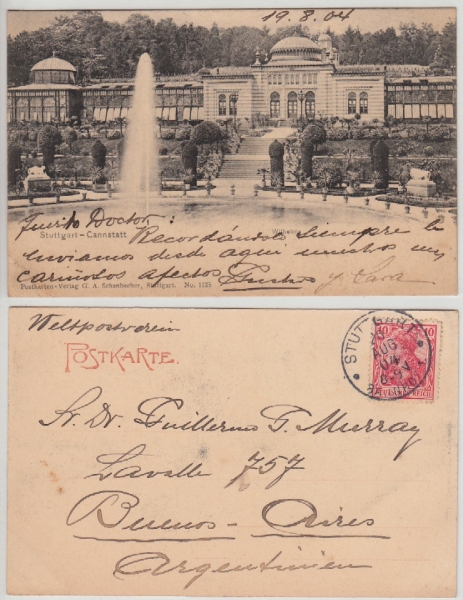 19.8.04
Stuttgart-Cannstatt
Wilhelma
Recordándote siempre te
enviamos desde aquí nuestros más
cariñosos afectos Gustavo y Sara
Postkarten-Verlag G. A. Schanbacher, Stuttgart. No. 1125
Weltpostverein
POSTKARTE.
STUTTGART
AUG
04
10 10
DEUTSCHES REICH
Sr. Dr. Guillermo T. Murray
Lavalle 757
Buenos-Aires
Argentinien